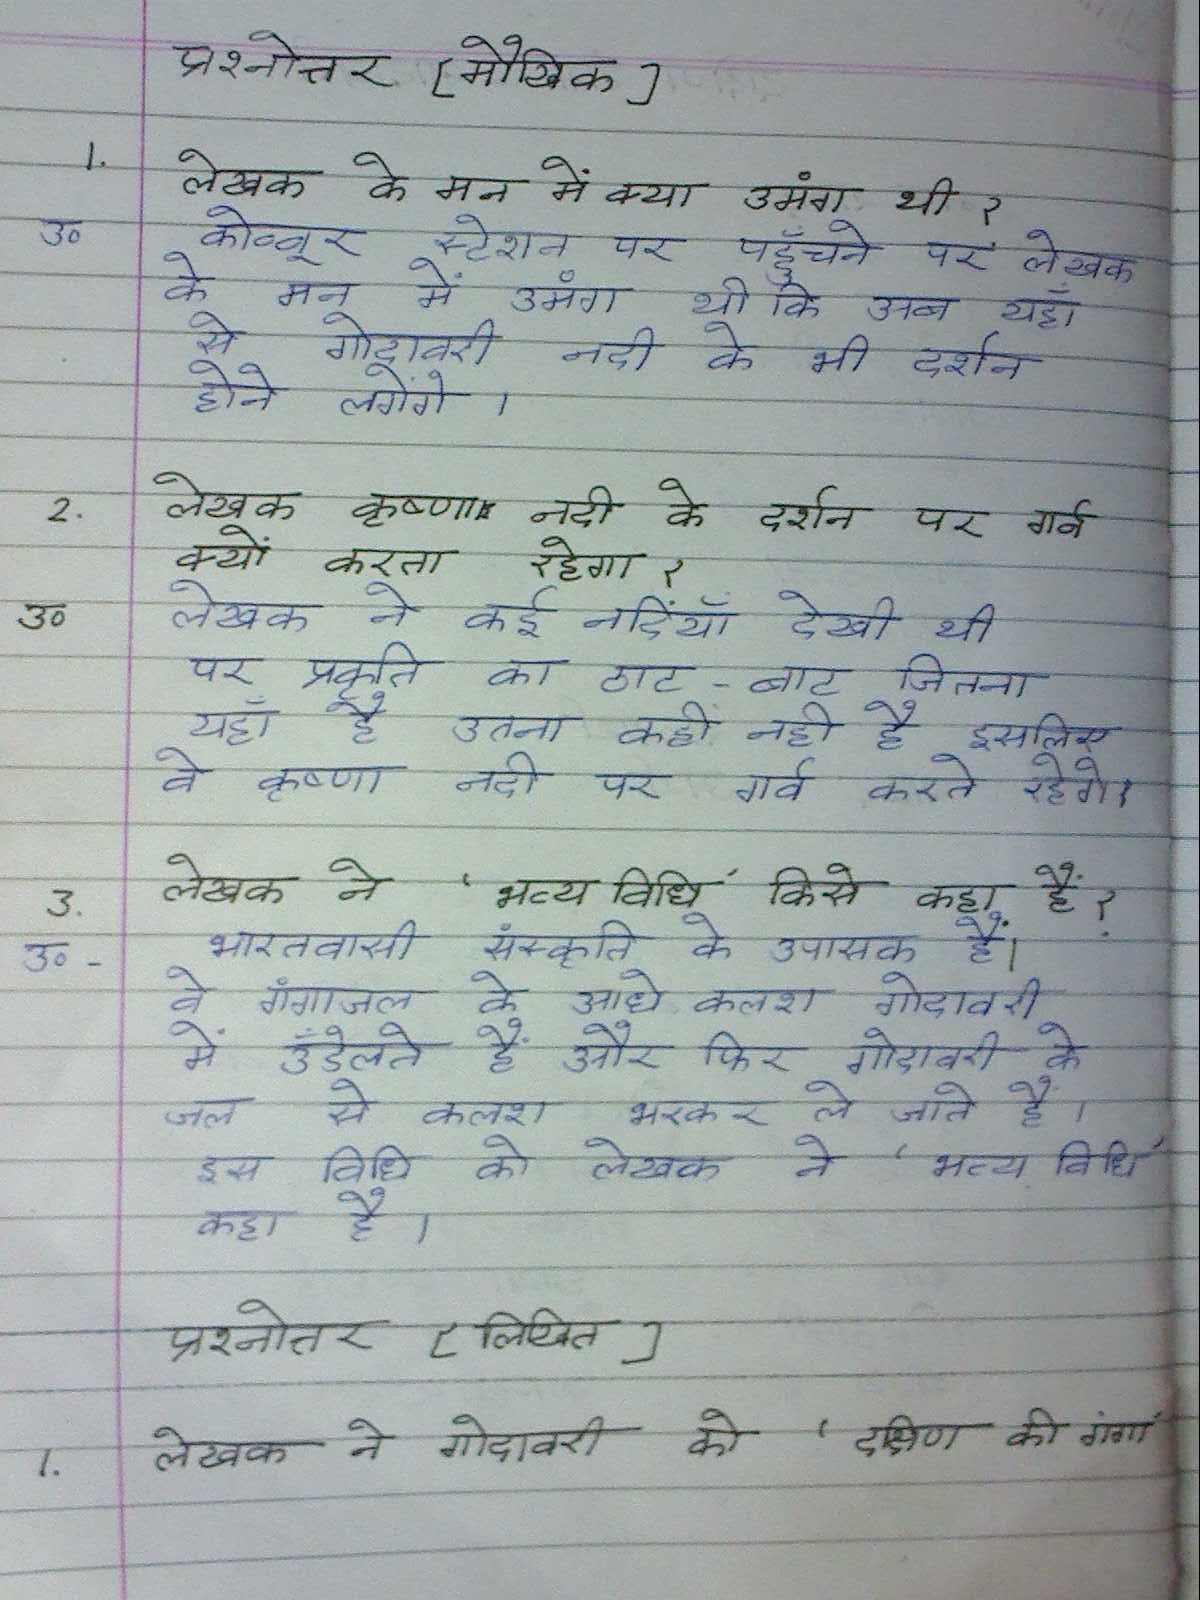 प्रश्नोत्तर [मौखिक]
1. लेखक के मन में क्या उमंग थी ?
उ० कोव्वूर स्टेशन पर पहुँचने पर लेखक
के मन में उमंग थी कि अब यहाँ
से गोदावरी नदी के भी दर्शन
होने लगेंगे ।
2. लेखक कृष्णा नदी के दर्शन पर गर्व
क्यों करता रहेगा ?
उ० लेखक ने कई नदियाँ देखी थी
पर प्रकृति का ठाट - बाट जितना
यहाँ है उतना कहीं नही है इसलिए
वे कृष्णा नदी पर गर्व करते रहेगे।
3. लेखक ने 'भव्य विधि' किसे कहा हैं ?
उ० - भारतवासी संस्कृति के उपासक हैं।
वे गंगाजल के आधे कलश गोदावरी
में उँडेलते हैं और फिर गोदावरी के
जल से कलश भरकर ले जाते है ।
इस विधि को लेखक ने 'भव्य विधि'
कहा है ।
प्रश्नोत्तर [लिखित]
1. लेखक ने गोदावरी को 'दक्षिण की गंगा'